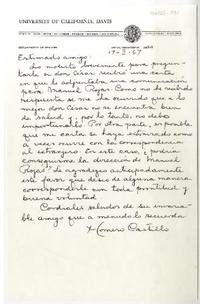 UNIVERSITY OF CALIFORNIA, DAVIS
17-II-67
Estimado amigo:
Lo molesto brevemente para preguntarle si don César recibió una carta
en que le adjuntaba una comunicación
para Manuel Rojas. Como no he recibido
respuesta se me ha ocurrido que a lo
mejor don César no se encuentra bien
de salud y, por lo tanto, no debo
importunarlo. Por otra parte, es posible
que mi carta se haya extraviado como
a veces ocurre con la correspondencia
al extranjero. En este caso, ¿podría
conseguirme la dirección de Manuel
Rojas? Le agradezco anticipadamente
este favor que deseo de alguna manera
corresponderle con toda prontitud y
buena voluntad.
Cordiales saludos de su invariable
amigo que a menudo lo recuerda
Homero Castillo